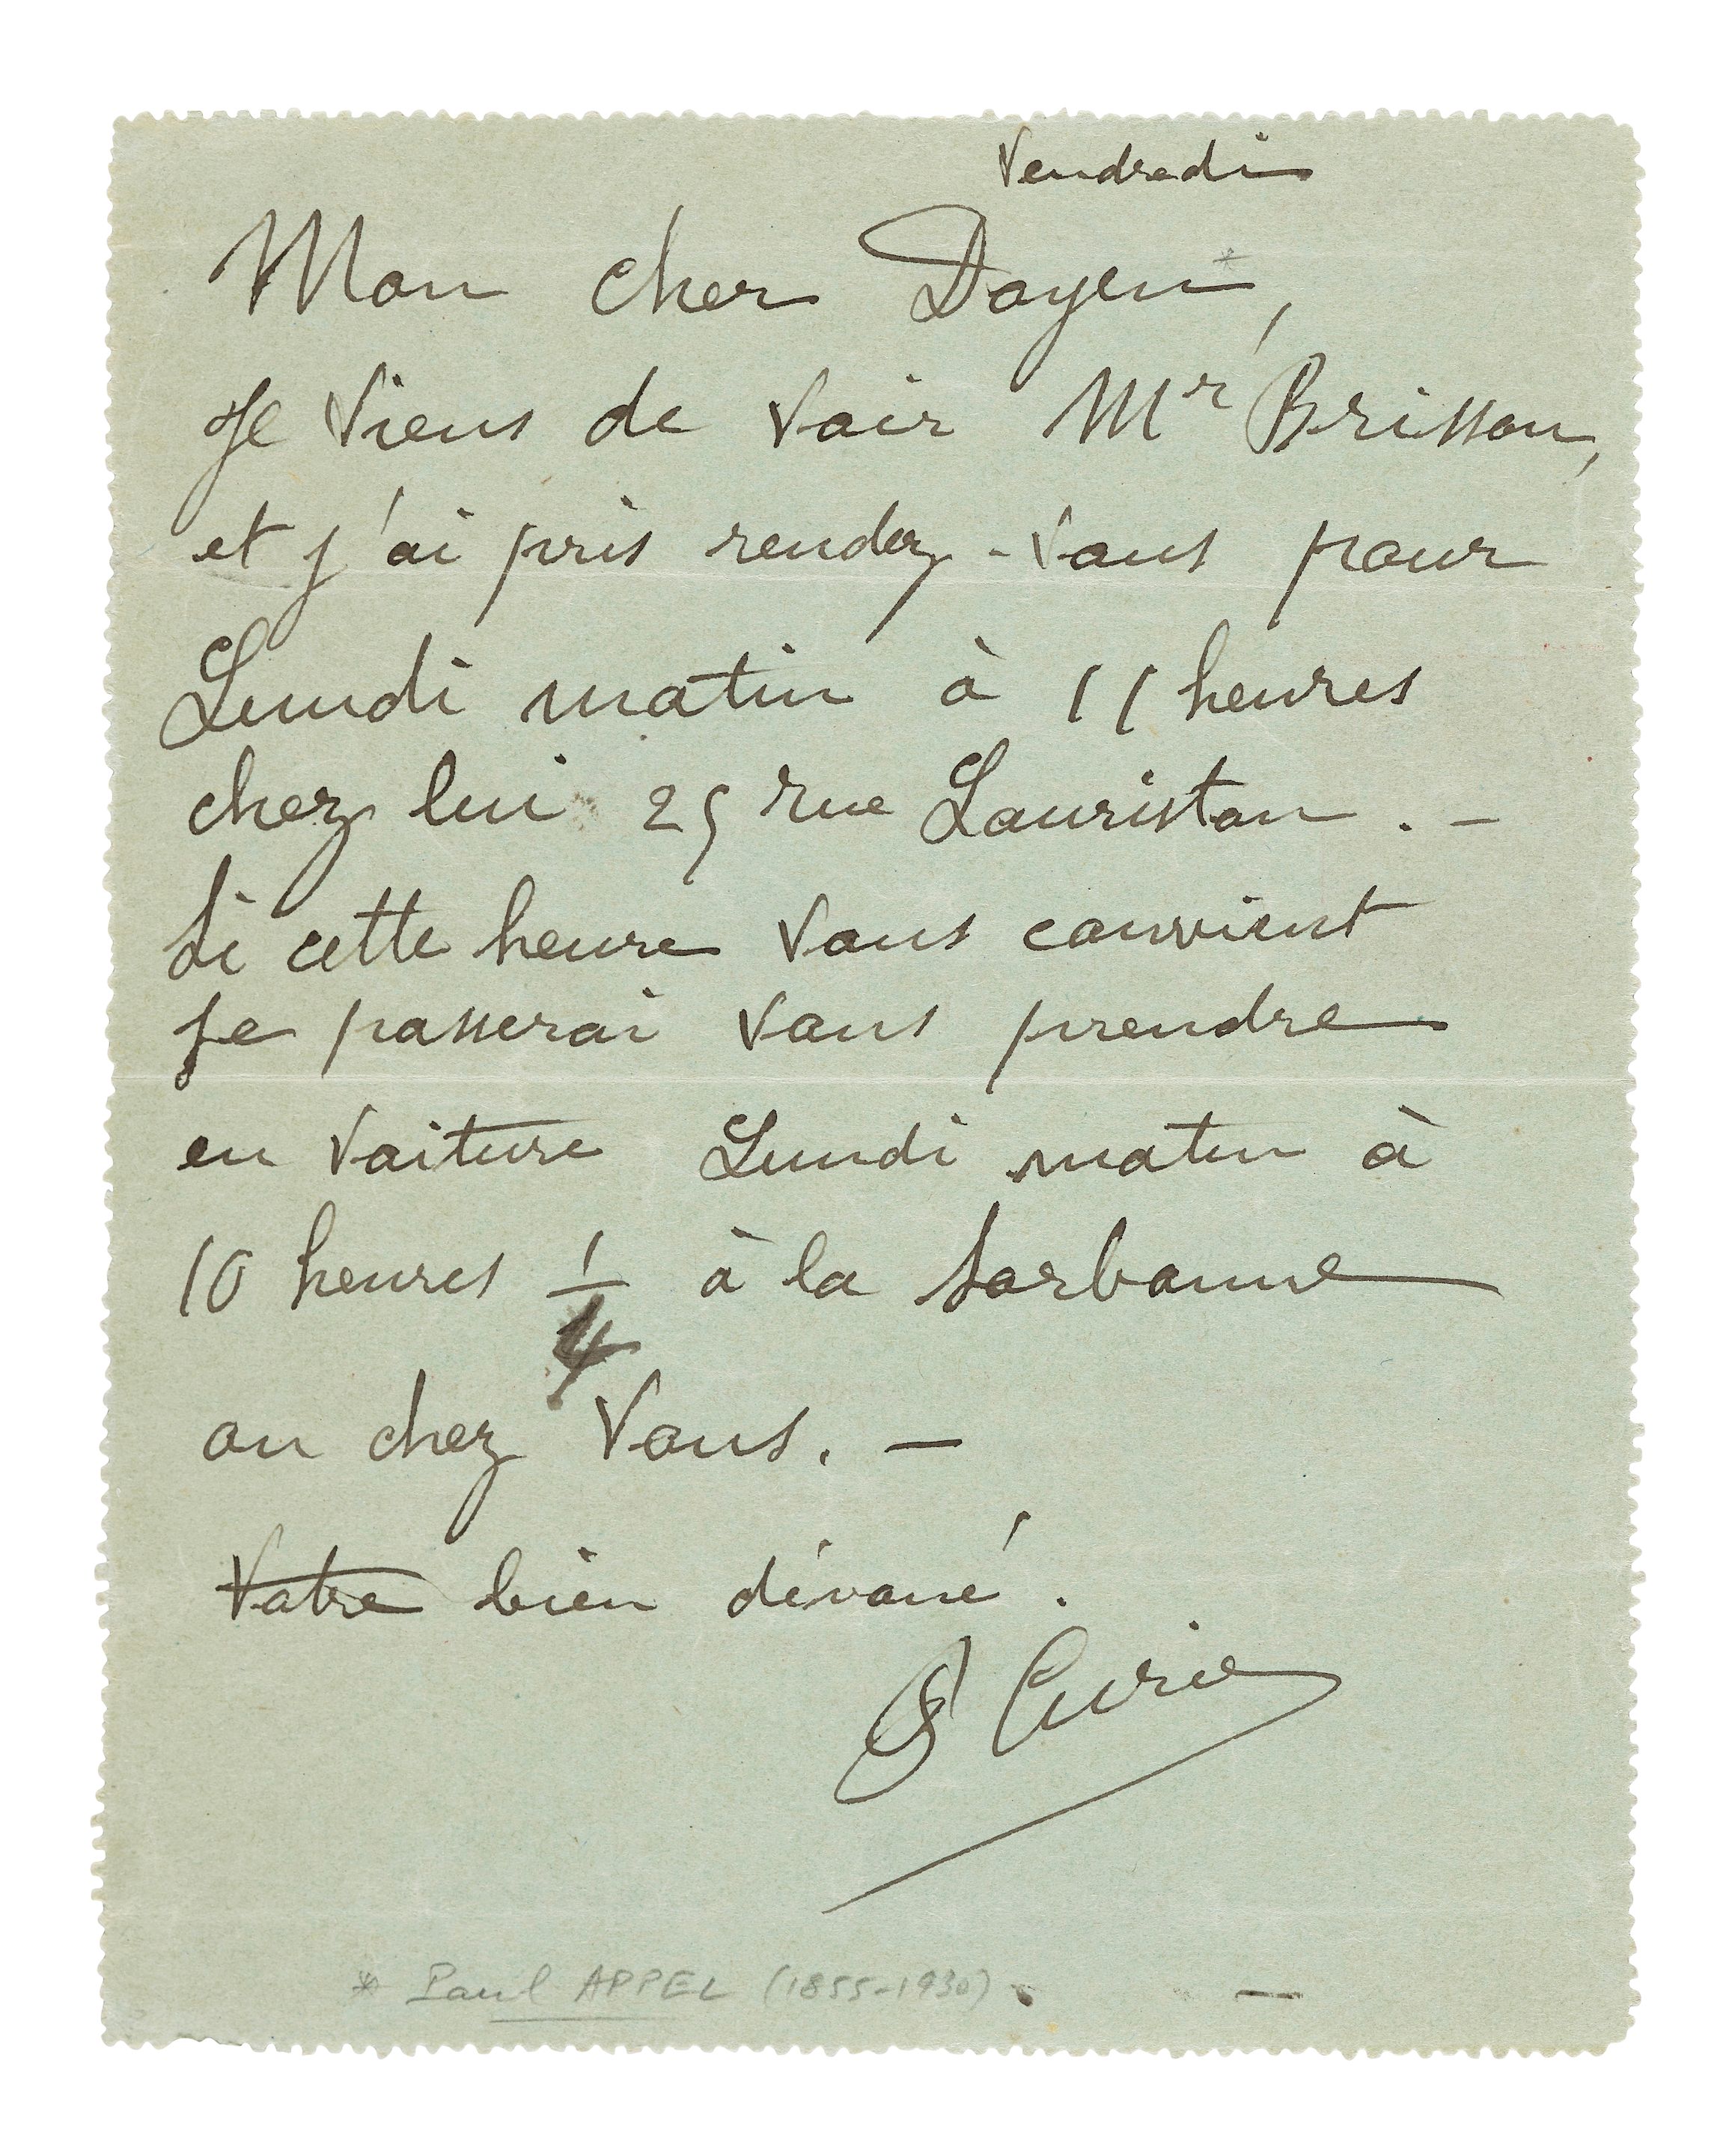 Vendredi
Mon cher Doyen*,
Je viens de voir Mr Brisson,
et j'ai pris rendez-vous pour
Lundi matin à 11 heures
chez lui 25 rue Lauriston. -
Si cette heure vous convient
je passerai vous prendre
en voiture Lundi matin à
10 heures 1/4 à la Sorbonne
ou chez vous. -
Votre bien dévoué.
P Curie
* Paul APPEL (1855-1930)